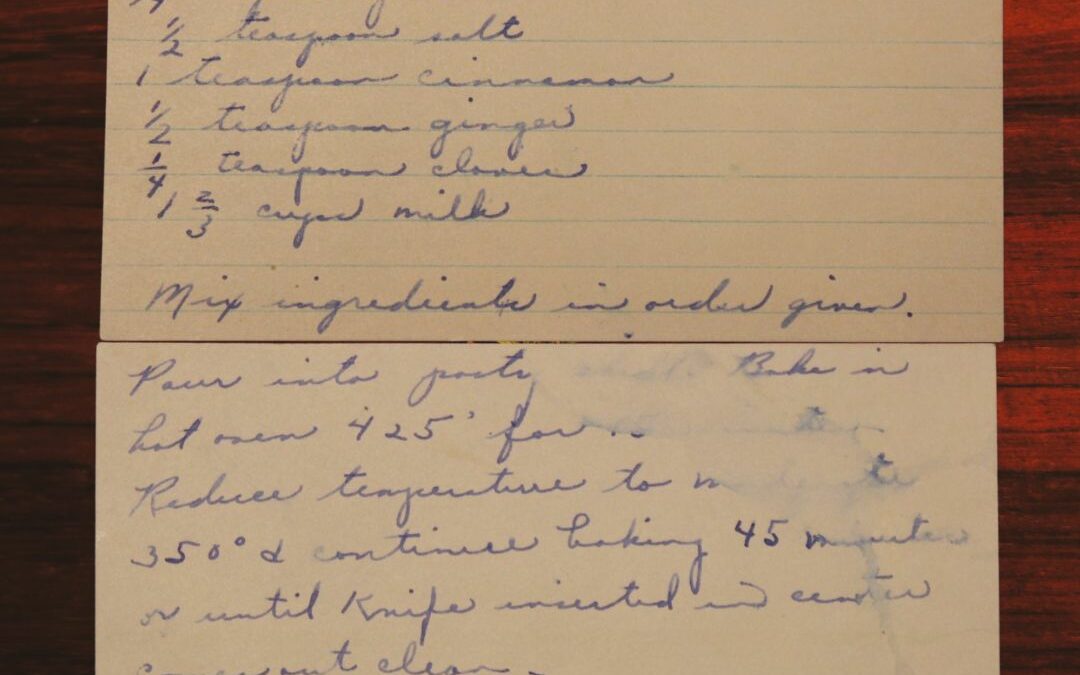 ½ teaspoon salt
1 teaspoon cinnamon
½ teaspoon ginger
¼ teaspoon cloves
1 ⅔ cups milk
Mix ingredients in order given.
Pour into pastry Bake in
hot oven 425° for
Reduce temperature to
350° & continue baking 45 minutes
or until Knife inserted in center
comes out clean.